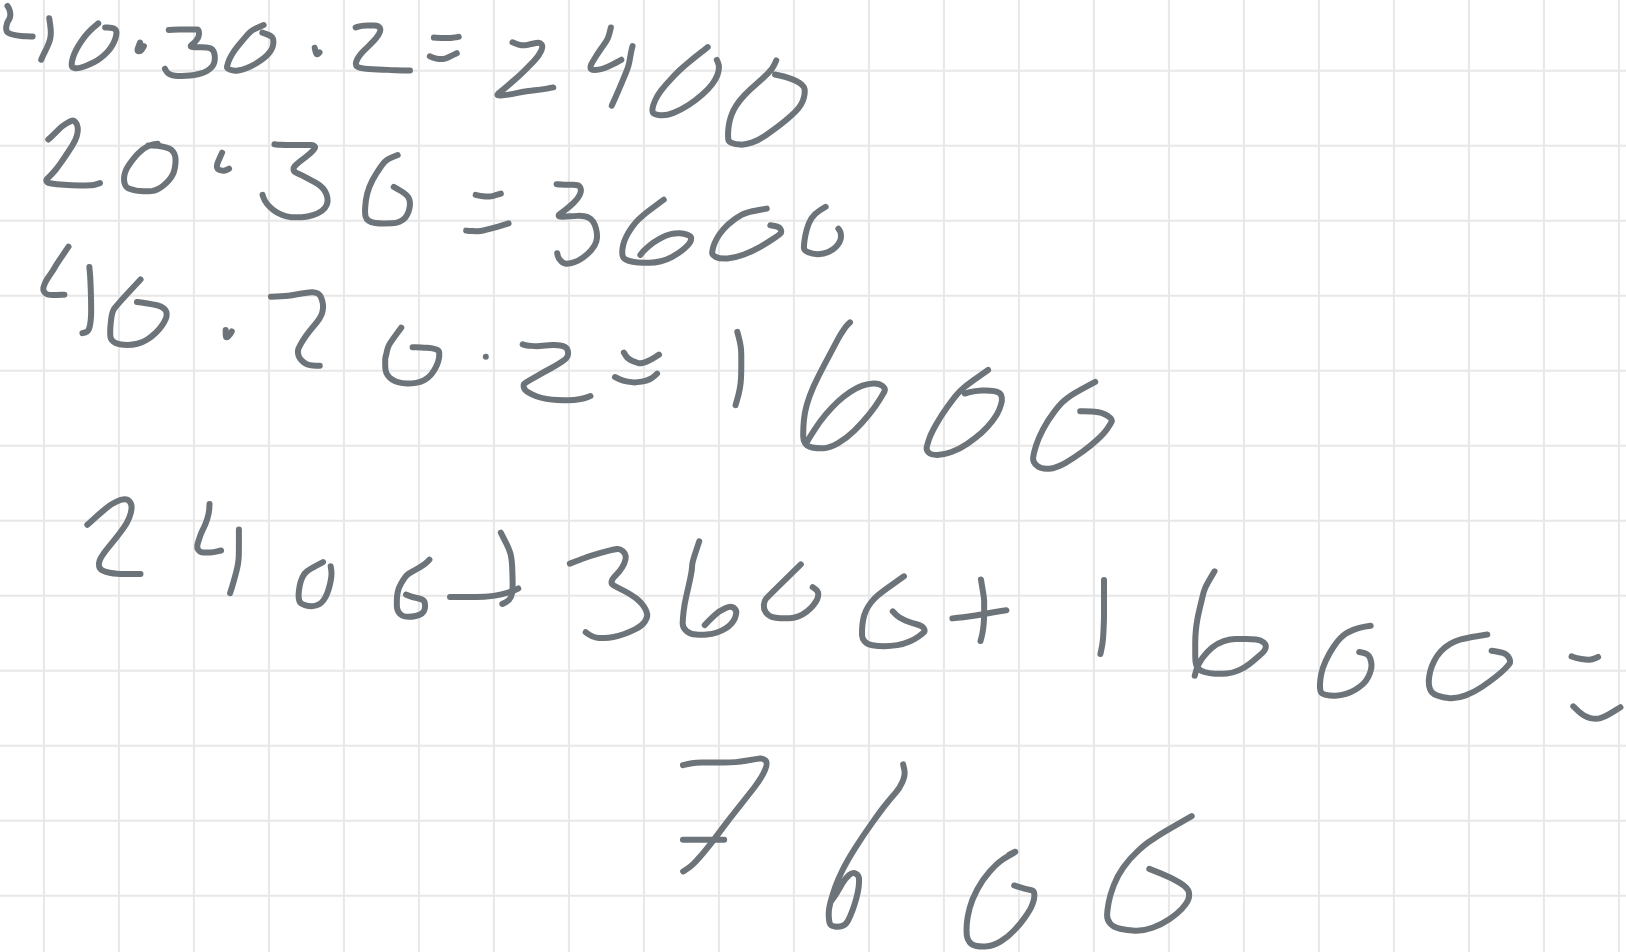 40·30·2=2400
20·30=3600
40·20·2=1600
2400+3600+1600=
7600